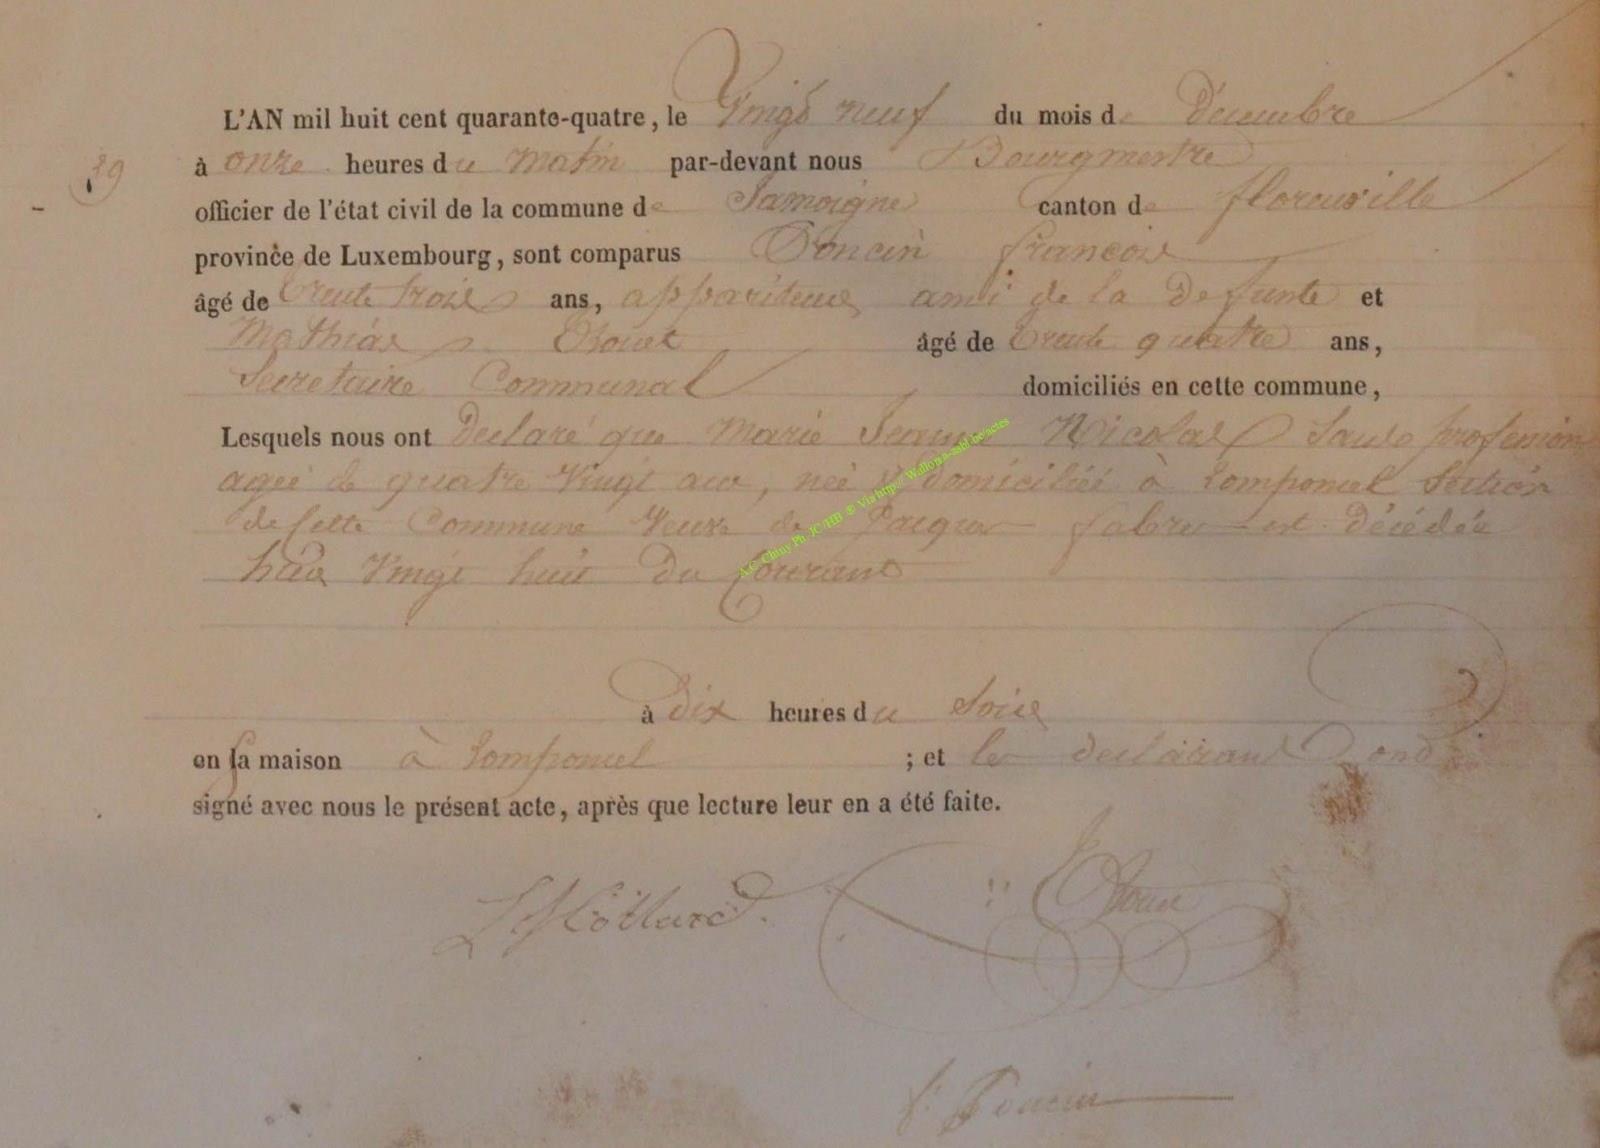 L'AN mil huit cent quarante-quatre, le Vingt neuf du mois de Décembre
29
à onze heures du matin par-devant nous Bourgmestre
officier de l'état civil de la commune de Jamoigne canton de florenville
province de Luxembourg, sont comparus Poncin françois
âgé de trente trois ans, appariteur ami de la defunte et
Mathias âgé de trente quatre ans,
Secretaire Communal domiciliés en cette commune,
Lesquels nous ont declaré que Marie Jeanne Nicolas Sans profession
agée de quatre Vingt ans, née & domiciliée à Romponcel Section
de Cette Commune Veuve de Jacques fabre est décédée
hier Vingt huit du Courant
à dix heures du Soir
en sa maison à Romponcel ; et les declarants ont
signé avec nous le présent acte, après que lecture leur en a été faite.
f. Poncin
A.C. Chiny Ph. JC/HB ® Via http:// Wallonia-asbl.be/actes